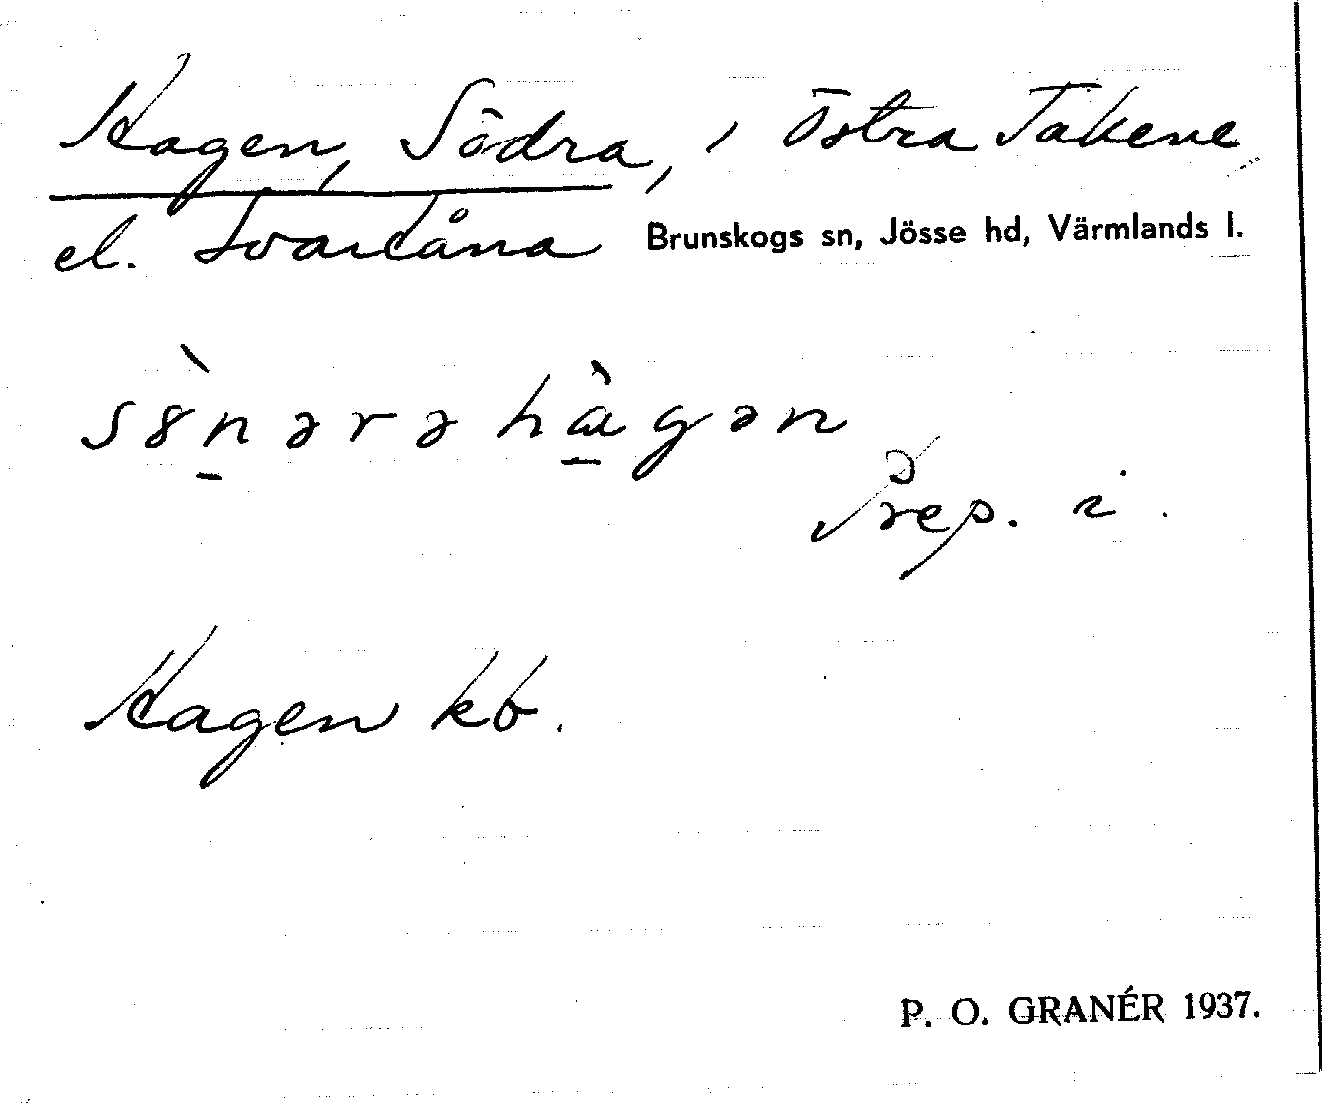 Hagen, Södra, i Östra Takene
el. Svartåna Brunskogs sn, Jösse hd, Värmlands l.
s8̀n̠ərə hà̠gən
Prep. i.
Hagen kb.
P. O. GRANÉR 1937.